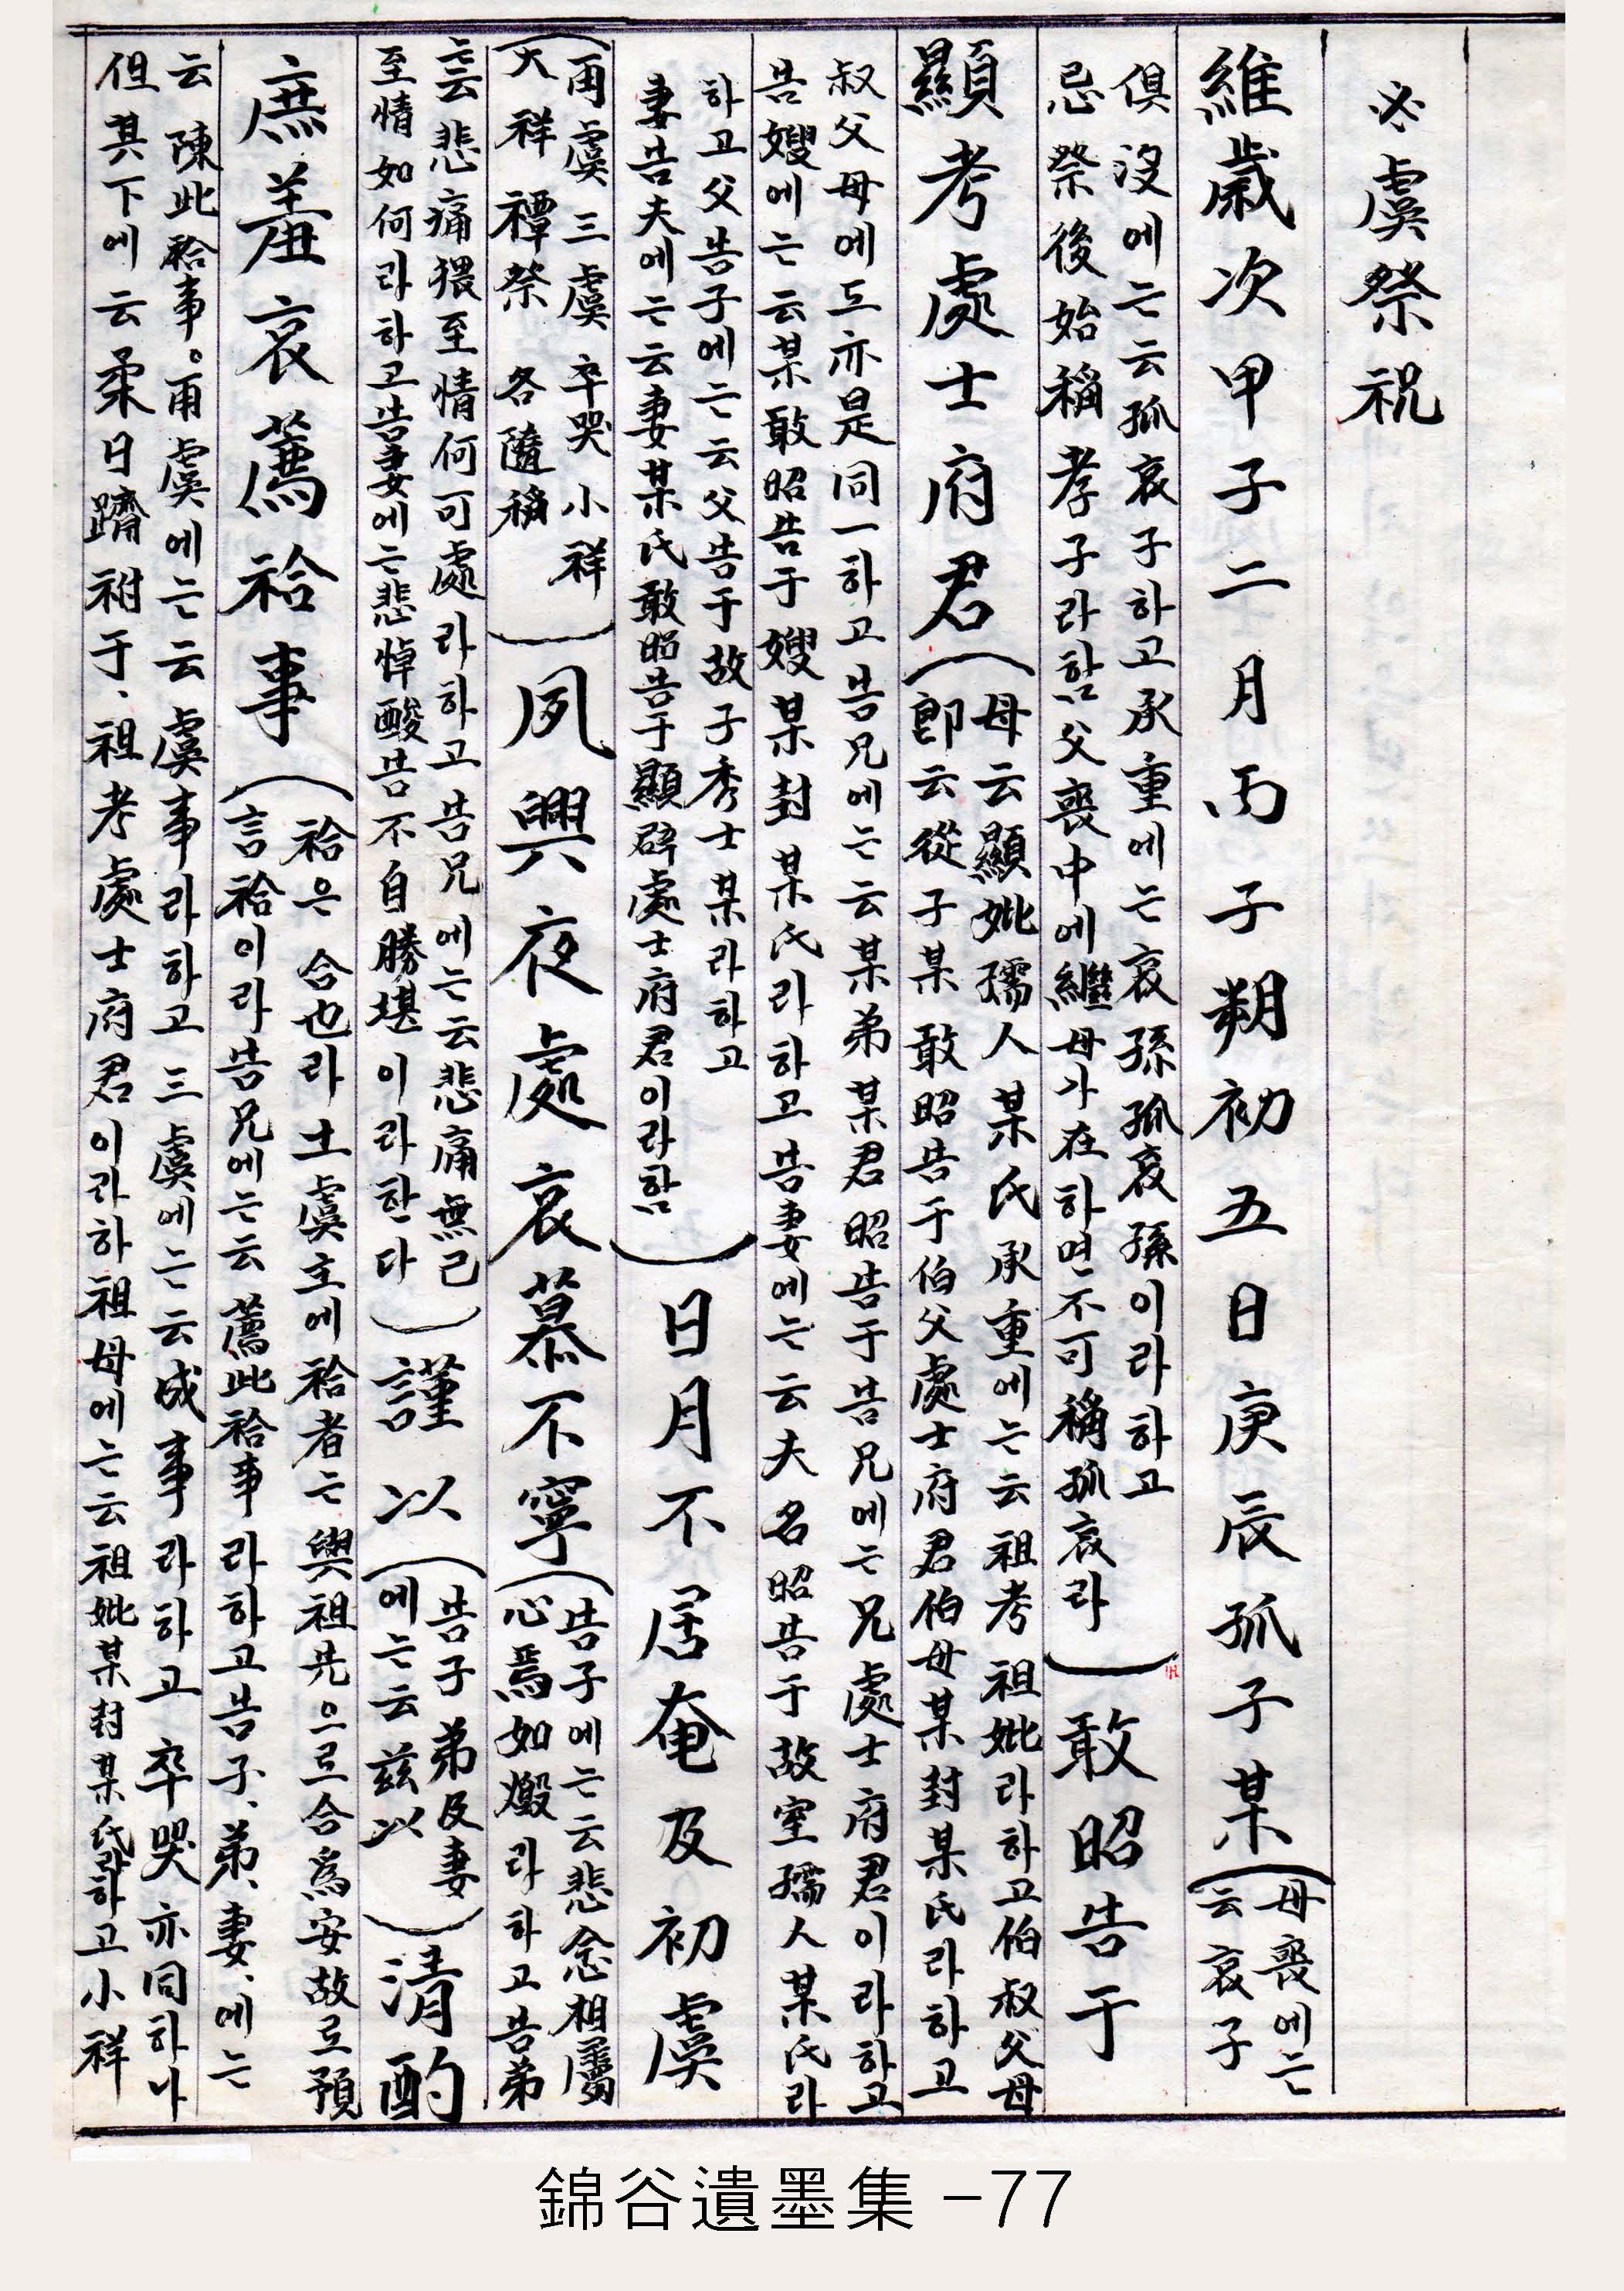 ※ 虞祭祝
維歲次甲子二月丙子朔初五日庚辰孤子某(母喪에는
云哀子
俱沒에는云孤哀子하고承重에는哀孫孤哀孫이라하고
忌祭後始稱孝子라함父喪中에繼母가在하면不可稱孤哀라)敢昭告于
顯考處士府君(母云顯妣孺人某氏承重에는云祖考祖妣라하고伯叔父母
郎云從子某敢昭告于伯父處士府君伯母某封某氏라하고
叔父母에도亦是同一하고告兄에는云某弟某君昭告于告兄에는兄處士府君이라하고
告嫂에는云某敢昭告于嫂某封某氏라하고告妻에는云夫名昭告于故室孺人某氏라
하고父告子에는云父告于故子秀士某라하고
妻告夫에는云妻某氏敢昭告于顯辟處士府君이라함)日月不居奄及初虞
(再虞三虞卒哭小祥
大祥禫祭各隨稱)夙興夜處哀慕不寧(告子에는云悲念相屬
心焉如燬라하고告弟
云云悲痛猥至情何可處라하고告兄에는云悲痛無已
至情如何라하고告妻에는悲悼酸苦不自勝堪이라한다)謹以(告子弟及妻
에는云玆以)清酌
庶羞哀薦祫事(祫은合也라士虞主에祫者는與祖先으로合爲安故로預
言祫이라告兄에는云薦此祫事라하고告子、弟、妻、에는
云陳此祫事。再虞에는云虞事라하고三虞에는云成事라하고卒哭亦同하나
但其下에云柔日隮祔于、祖考處士府君이라하祖母에는云祖妣某封某氏라하고小祥
錦谷遺墨集 -77